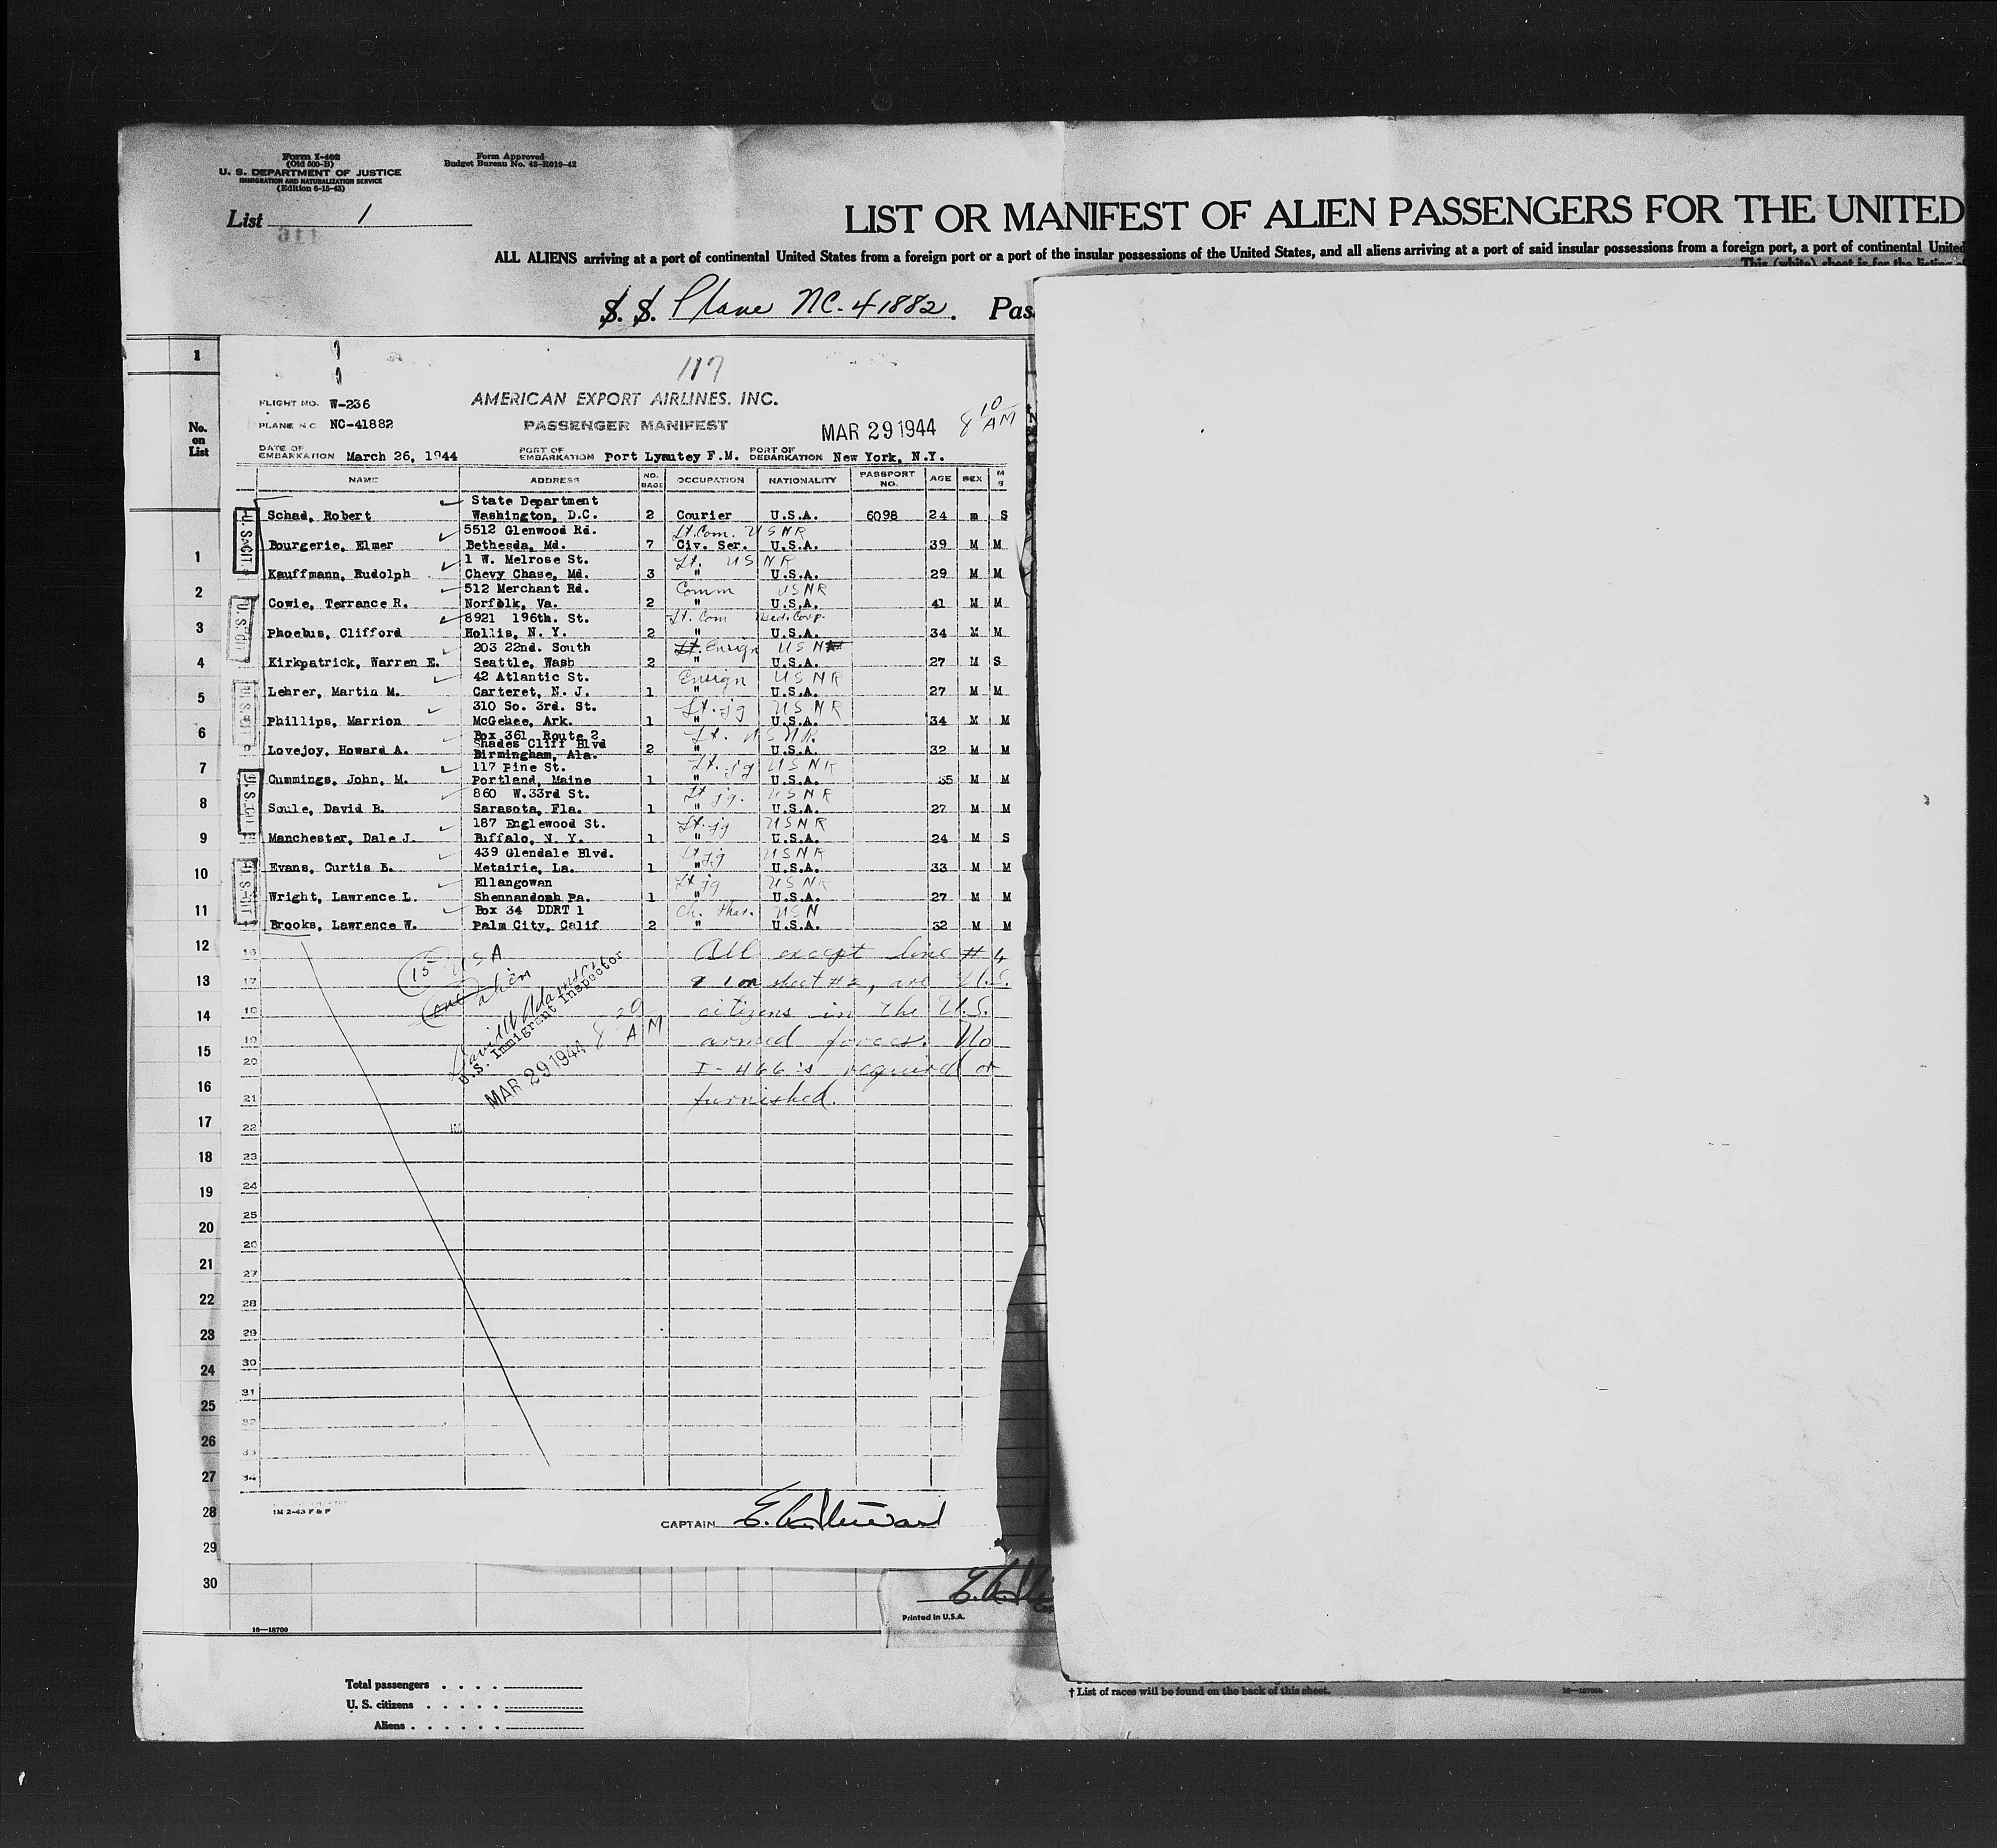 Form I-402
(Old 500-B)
U. S. DEPARTMENT OF JUSTICE
IMMIGRATION AND NATURALIZATION SERVICE
(Edition 6-15-43)
Form Approved
Budget Bureau No. 43-R019-42
List 1
LIST OR MANIFEST OF ALIEN PASSENGERS FOR THE UNITED
ALL ALIENS arriving at a port of continental United States from a foreign port or a port of the insular possessions of the United States, and all aliens arriving at a port of said insular possessions from a foreign port, a port of continental United
This (white) sheet is for the listing
S. S. Plane NC. 41882. Pas
1
No. on List
117
FLIGHT NO. W-236
AMERICAN EXPORT AIRLINES, INC.
PLANE NC NC-41882
PASSENGER MANIFEST
MAR 29 1944 8 10 AM
DATE OF EMBARKATION March 26, 1944 PORT OF EMBARKATION Port Lyautey F.M. PORT OF DEBARKATION New York, N.Y.
NAME ADDRESS NO. BAGS OCCUPATION NATIONALITY PASSPORT NO. AGE SEX M S
State Department
Schad, Robert Washington, D.C. 2 Courier U.S.A. 6098 24 m S
5512 Glenwood Rd. Lt. Com. USNR
Bourgerie, Elmer Bethesda, Md. 7 Civ. Ser. U.S.A. 39 M M
1 W. Melrose St. Lt. USNR
Kauffmann, Rudolph Chevy Chase, Md. 3 " U.S.A. 29 M M
512 Merchant Rd. Comm USNR
Cowie, Terrance R. Norfolk, Va. 2 " U.S.A. 41 M M
8921 196th. St. Lt. Com Med. Corp.
Phoebus, Clifford Hollis, N. Y. 2 " U.S.A. 34 M M
203 22nd. South Lt. Ensign USN
Kirkpatrick, Warren E. Seattle, Wash 2 " U.S.A. 27 M S
42 Atlantic St. Ensign USNR
Lehrer, Martin M. Carteret, N. J. 1 " U.S.A. 27 M M
310 So. 3rd. St. Lt. jg USNR
Phillips, Marrion McGehee, Ark. 1 " U.S.A. 34 M M
Box 361, Route 2 Lt. USNR
Shades Cliff Blvd
Lovejoy, Howard A. Birmingham, Ala. 2 " U.S.A. 32 M M
117 Pine St. Lt. jg USNR
Cummings, John, M. Portland, Maine 1 " U.S.A. 35 M M
860 W.33rd St. Lt jg. USNR
Soule, David B. Sarasota, Fla. 1 " U.S.A. 27 M M
187 Englewood St. Lt. jg USNR
Manchester, Dale J. Buffalo, N. Y. 1 " U.S.A. 24 M S
439 Glendale Blvd. Lt jg USNR
Evans, Curtis B. Metairie, La. 1 " U.S.A. 33 M M
Ellangowan Lt jg USNR
Wright, Lawrence L. Shennandoah Pa. 1 " U.S.A. 27 M M
Box 34 DDRT 1 Ch. Phar. USN
Brooks, Lawrence W. Palm City, Calif 2 " U.S.A. 32 M M
U. S. CIT
U. S. CIT
U. S. CIT
U. S. CIT
U. S. CIT
15 USA
one alien
U.S. Immigrant Inspector
MAR 29 1944 8 20 AM
All except line #4
1 on sheet #2, are U.S.
citizens in the U.S.
armed forces. No
I-466's required or
furnished.
16
17
18
19
20
21
22
23
24
25
26
27
28
29
30
31
32
33
34
1M 2-43 P & P
CAPTAIN
1
2
3
4
5
6
7
8
9
10
11
12
13
14
15
16
17
18
19
20
21
22
23
24
25
26
27
28
29
30
16—18700
Printed in U.S.A.
Total passengers
U. S. citizens
Aliens
† List of races will be found on the back of this sheet.